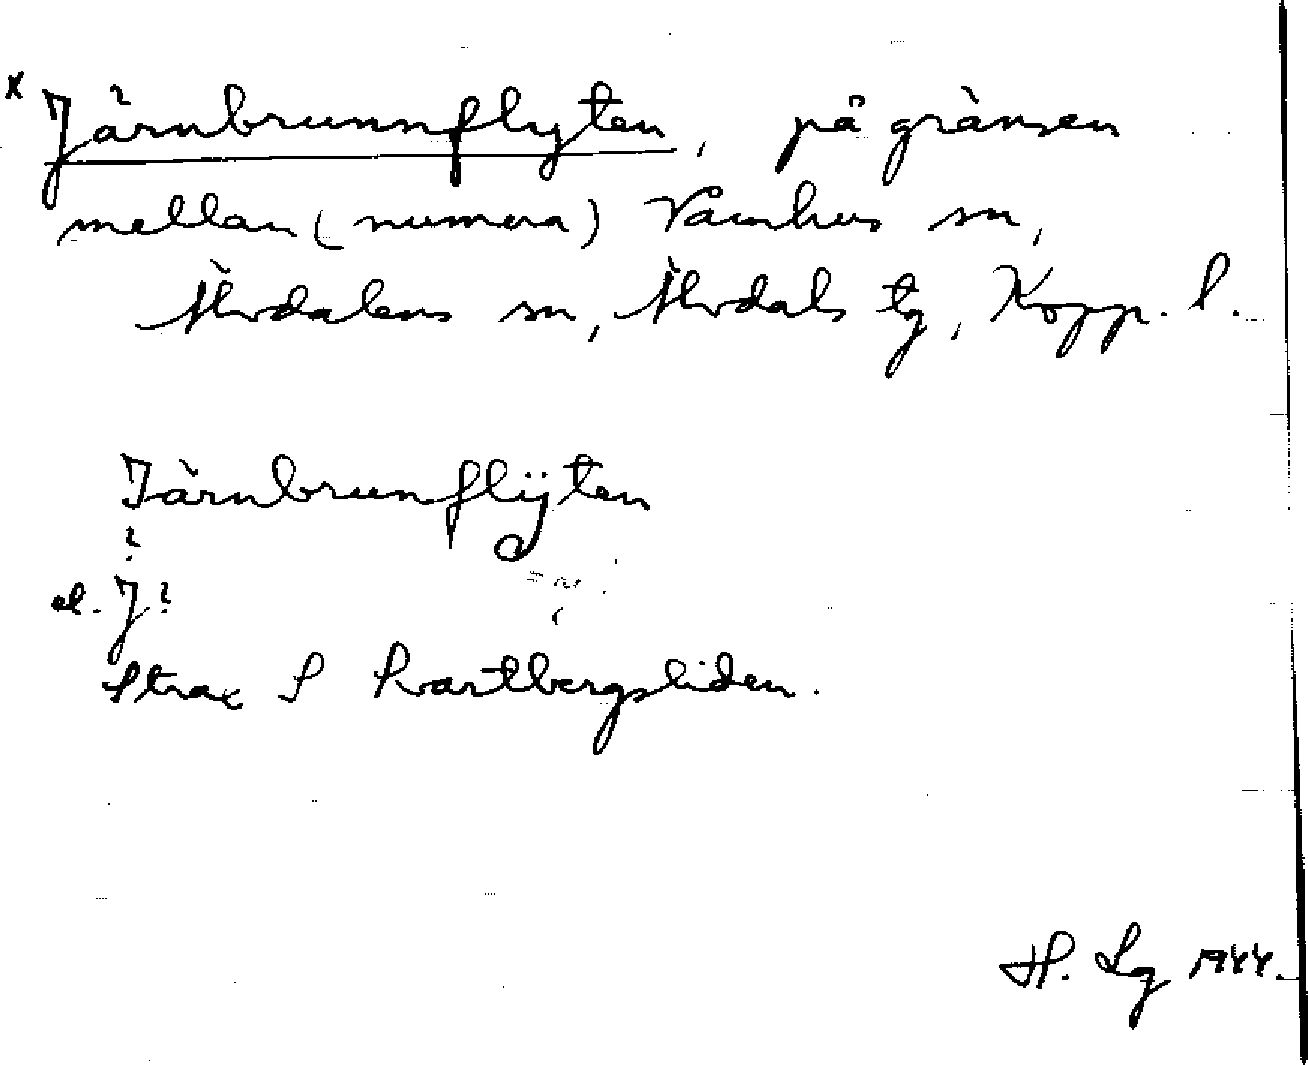 x Järnbrunnflyten, på gränsen
mellan (numera) Våmhus sn,
Älvdalens sn, Älvdals tg, Kopp. l.
Järnbrunflÿten
?
el. J?
Strax S Svartbergsliden.
H. Lg 1944.